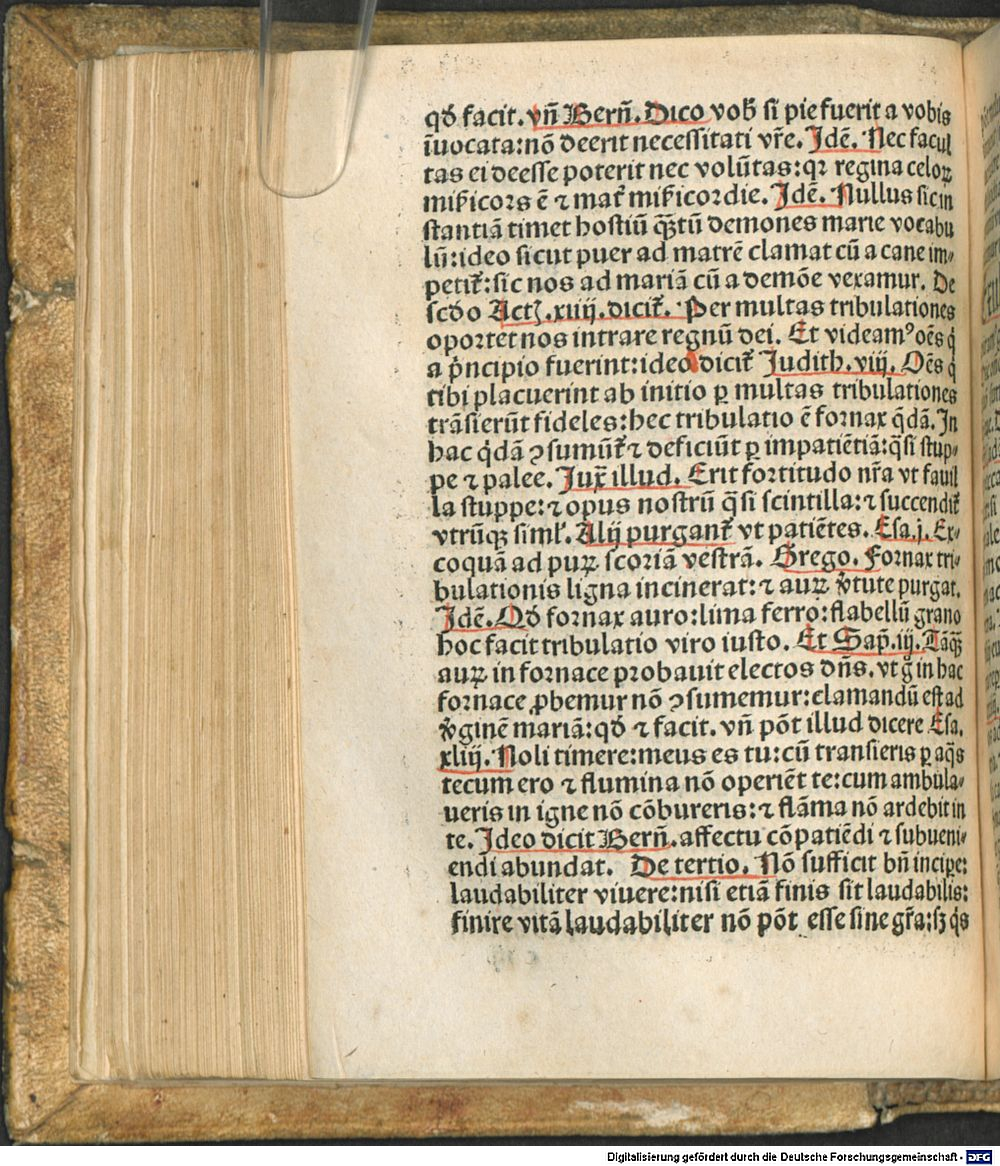 qď facit. vñ Berñ. Dico vob̄ si pie fuerit a vobis
īuocata: nō deerit necessitati vr̄e. Jdē. Nec facul
tas ei deesse poterit nec volūtas: qꝛ regina celoꝝ
mīicors ē ⁊ mať mīicordie. Jdē. Nullus sic in
stantiā timet hostiū qꝫtū demones marie vocabu
lū: ideo sicut puer ad matrē clamat cū a cane im⸗
petiť: sic nos ad mariā cū a demōe vexamur. De
scďo Actꝭ. xiiij. diciť. Per multas tribulationes
oportet nos intrare regnū dei. Et videamꝰ oēs q̇
a pͥncipio fuerint: ideo diciť Judith. viij. Oēs q̇
tibi placuerint ab initio ꝑ multas tribulationes
trāsierūt fideles: hec tribulatio ē fornax q̄dā. Jn
hac q̇dā ꝯsumūť ⁊ deficiūt ꝑ impatiētiā: q̄si stup⸗
pe ⁊ palee. Juꝝ illud. Erit fortitudo nr̄a vt fauil
la stuppe: ⁊ opus nostrū q̄si scintilla: ⁊ succendiť
vtrūqꝫ simľ. Alij purganť vt patiētes. Esa. j. Ex⸗
coquā ad puꝝ scoriā vestrā. Grego. Fornax tri⸗
bulationis ligna incinerat: ⁊ auꝝ ꝟtute purgat.
Jdē. Qď fornax auro: lima ferro: flabellū grano
hoc facit tribulatio viro iusto. Et Sap̄. iij. Tāqꝫ
auꝝ in fornace probauit electos dn̄s. vt g̈ in hac
fornace ꝓbemur nō ꝯsumemur: clamandū est ad
ꝟginē mariā: qď ⁊ facit. vñ pōt illud dicere Esa.
xliij. Noli timere: meus es tu: cū transieris ꝑ aq̄s
tecum ero ⁊ flumina nō operiēt te: cum ambula⸗
ueris in igne nō cōbureris: ⁊ flāma nō ardebit in
te. Jdeo dicit Berñ. affectu cōpatiēdi ⁊ subueni⸗
endi abundat. De tertio. Nō sufficit bn̄ incipe:
laudabiliter viuere: nisi etiā finis sit laudabilis:
finire vitā laudabiliter nō pōt esse sine gr̄a: sꝫ q̇s
Digitalisierung gefördert durch die Deutsche Forschungsgemeinschaft - DFG